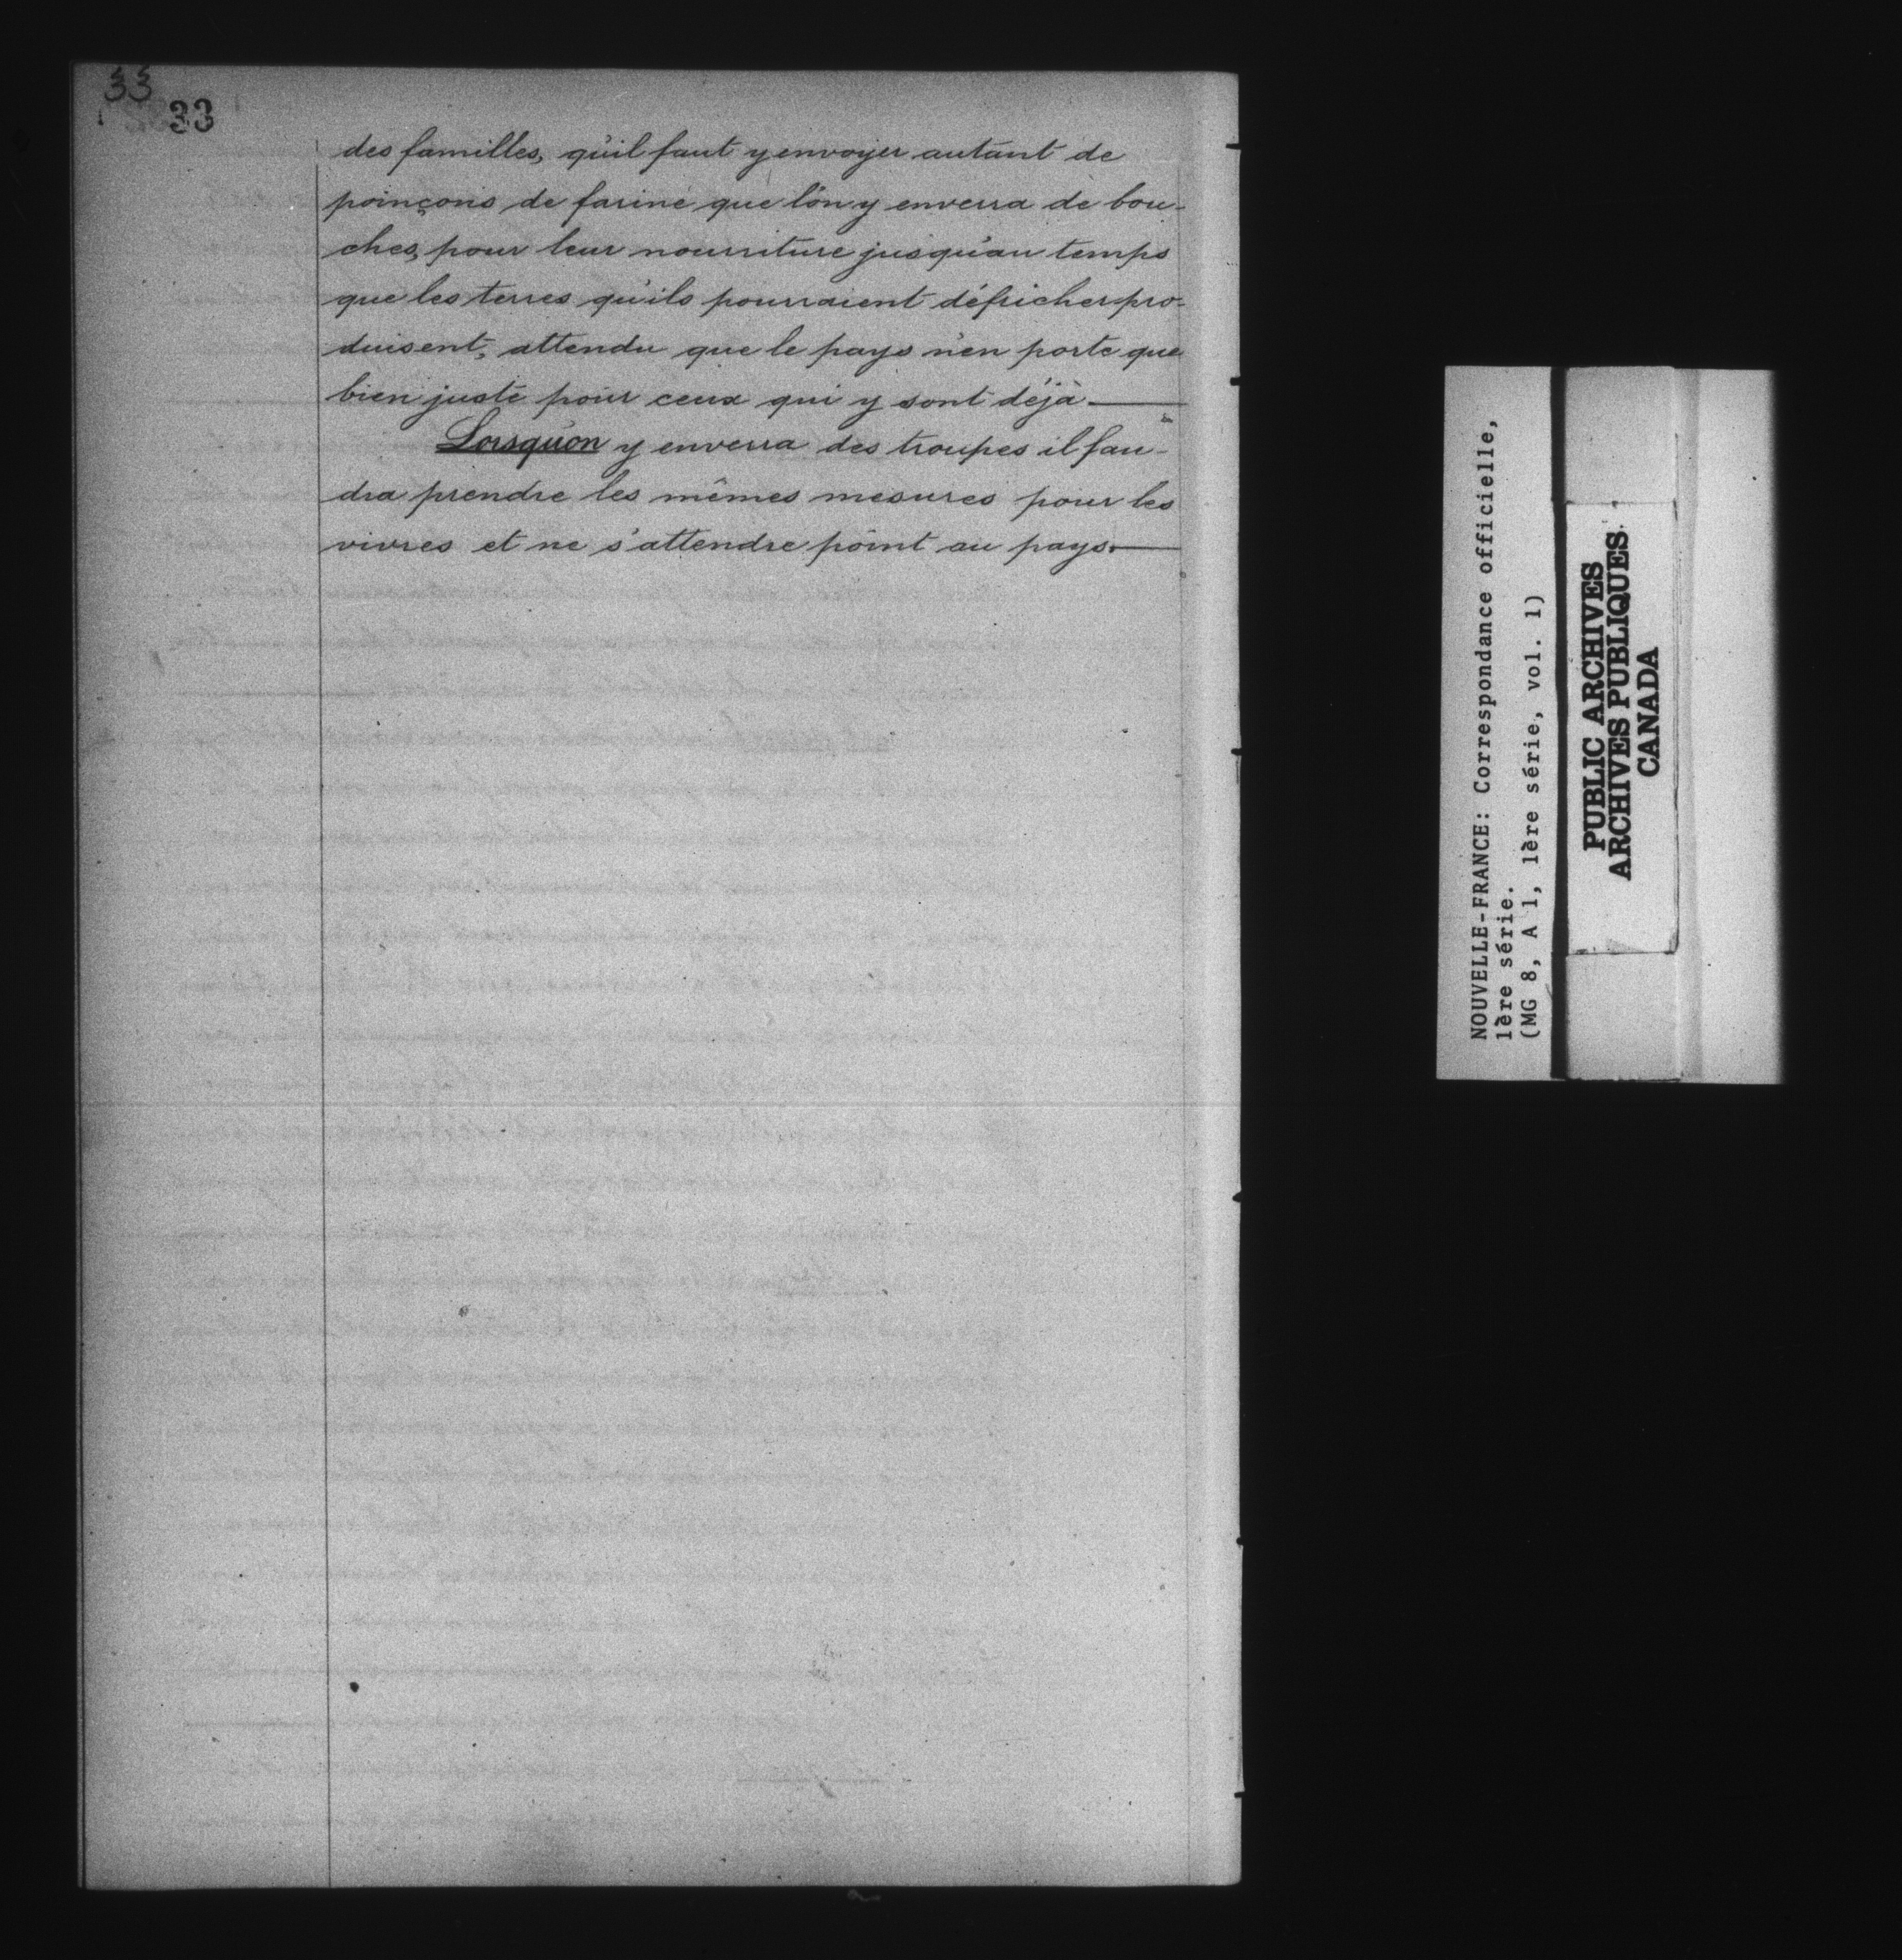 33
33
des familles, qu'il faut y envoyer autant de
poinçons de farine que l'on y enverra de bou-
ches, pour leur nourriture jusqu'au temps
que les terres qu'ils pourraient défricher pro-
duisent, attendu que le pays n'en porte que
bien juste pour ceux qui y sont déjà
Lorsqu'on y enverra des troupes il fau-
dra prendre les mêmes mesures pour les
vivres et ne s'attendre point au pays.
NOUVELLE-FRANCE: Correspondance officielle,
1ère série.
(MG 8, A 1, 1ère série, vol. 1)
PUBLIC ARCHIVES
ARCHIVES PUBLIQUES
CANADA